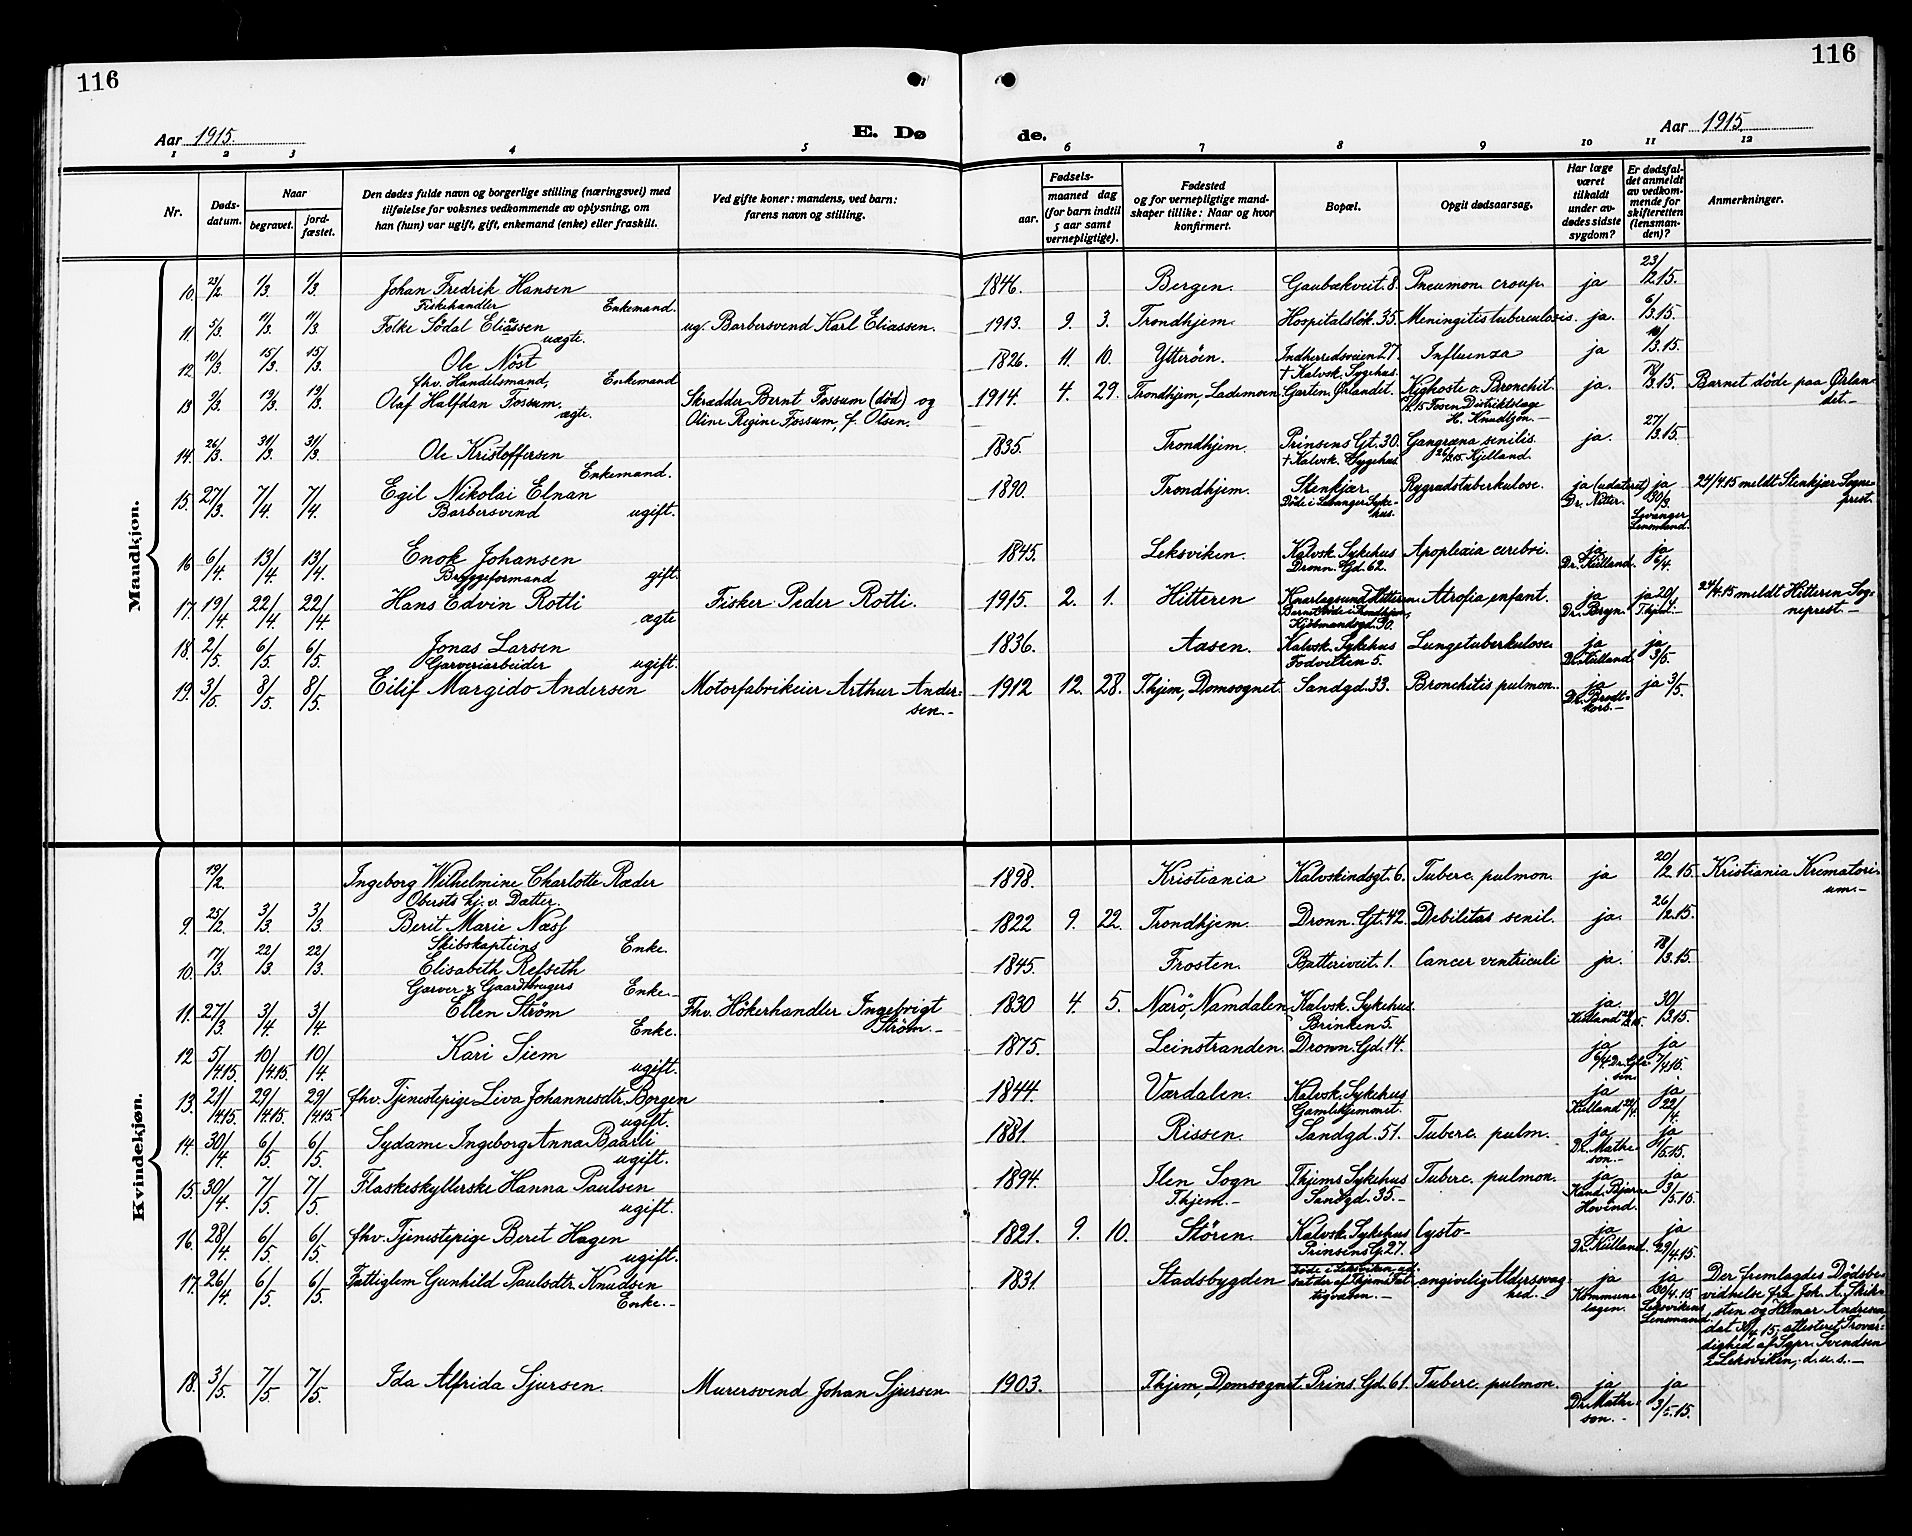 116
116
Aar 1915.
E. Dø
de.
Aar 1915.
1 2 3 4 5 6 7 8 9 10 11 12
Nr.
Døds-
datum.
Naar
begravet.
jord-
fæstet.
Den dødes fulde navn og borgerlige stilling (næringsvei) med
tilføielse for voksnes vedkommende av oplysning, om
han (hun) var ugift, gift, enkemand (enke) eller fraskilt.
Ved gifte koner: mandens, ved barn:
farens navn og stilling.
Fødsels-
aar.
maaned dag
(for barn indtil
5 aar samt
vernepligtige).
Fødested
og for vernepligtige mand-
skaper tillike: Naar og hvor
konfirmert.
Bopæl.
Opgit dødsaarsag.
Har læge
været
tilkaldt
under av-
dødes sidste
sygdom?
Er dødsfal-
det anmeldt
av vedkom-
mende for
skifteretten
(lensman-
den)?
Anmerkninger.
Mandkjøn.
10. 22/2 1/3. 1/3. Johan Fredrik Hansen 1846. Bergen. Gaubækveit. 8. Pneumon. croup. ja 23/2.15.
Fiskehandler Enkemand.
11. 5/3. 11/3. 11/3. Folke Södal Eliassen ug. Barbersvend Karl Eliassen. 1913. 9. 3. Trondhjem. Hospitalslök. 35. Meningitis tuberculosis. ja. 6/3.15.
uægte.
12. 10/3. 15/3. 15/3. Ole Nöst 1826. 11. 10. Ytteröen. Indherredsveien 27. Influenza ja 10/3.15.
fhv. Handelsmand, Enkemand † Kalvsk. Sygehus.
13 9/3. 19/3. 19/3. Olaf Halfdan Fossum. Skrædder Bernt Fossum (död) og 1914. 4. 29. Trondhjem, Lademoen. Garten, Ørlandet. Kighoste o. Bronchit. ja. 18/3.15. Barnet döde paa Ørlan-
ægte. Oline Regine Fossum, f. Olsen. Fosen Distriktslæge det.-
H. Knudtzon.-
14. 26/3. 31/3. 31/3. Ole Kristoffersen 1835. Trondhjem. Prinsens Gt. 30. Gangræna senilis. ja. 27/3.15.
Enkemand. † Kalvsk. Sygehus. 26/3.15. Kjelland.
15. 27/3. 7/4. 7/4. Egil Nikolai Elnan 1890. Trondhjem. Stenkjær. Rygradstuberkulose. ja (udateret) ja 24/4.15 meldt Stenkjær Sogne
Barbersvend ugift. Döde i Levanger Syke- Dr. 30/3. prest.
hus. Levanger
Lensmand.
16 6/4. 13/4. 13/4. Enok Johansen 1845. Leksviken. Kalvsk. Sykehus Apoplexia cerebri. ja ja
Bryggeformand gift. Dronn. Gd. 62. Dr. Kielland. 6/4.
17. 19/4. 22/4. 22/4. Hans Edvin Rotli Fisker Peder Rotli. 1915. 2. 1. Hitteren Knarlagsund, Hitteren. Atrofia, enfant. ja ja 20/4 24/4.15 meldt Hitteren Sog-
ægte Barnet döde i Trondhjem, Dr. Bryn. Thjem.- neprest.-
Kjöbmandsgd. 30.
18. 2/5. 6/5. 6/5. Jonas Larsen 1836. Aasen. Kalvsk. Sykehus Lungetuberkulose. ja ja
Garveriarbeider ugift. Fodveiten 5. Dr. Kielland. 3/5.
19. 3/5. 8/5. 8/5. Eilif Margido Andersen Motorfabrikeier Arthur Ander- 1912 12. 28. Thjem, Domsognet. Sandgd. 33. Bronchitis pulmon. ja ja 3/5.
sen.- Dr. Brodt-
korb.-
Kvindekjøn.
19/2. Ingeborg Wilhelmine Charlotte Ræder 1898. Kristiania Kalvskindsgt. 6. Tuberc. pulmon. ja 20/2.15. Kristiania Krematori-
Obersts hj. v. Datter um.-
9. 25/2. 3/3. 3/3. Berit Marie Næss 1822 9. 22. Trondhjem. Dronn. Gt. 42. Debilitas senil. ja. 26/2.15.
Skibskapteins Enke.
10. 17/3. 22/3. 22/3. Elisabeth Refseth 1845. Frosten. Batteriveit. 1. Cancer ventriculi ja. 18/3.15
Garver & Gaardbrugers Enke.-
11. 27/3. 3/4. 3/4. Ellen Ström Fhv. Hökerhandler Ingebrigt 1830 4. 5. Nærö, Namdalen Kalvsk. Sykehus. ja. 30/3.15.
Enke. Ström.- Brinken 5. Kielland
12. 5/4.15. 10/4.15. 10/4. Kari Siem 1875. Leinstranden. Dronn. Gd. 14. ja ja
ugift. 6/4 Dr. 7/4.15.
13. 21/4.15 29/4.15. 29/4.15. fhv. Tjenestepige Liva Johannesdtr. Borgen 1844. Værdalen. Kalvsk. Sykehus ja ja
ugift. Gamlehjemmet. Kielland 22/4. 22/4.
14. 30/4. 6/5. 6/5. Sydame Ingeborg Anna Baarli 1881. Rissen. Sandgd. 51. Tuberc. pulm. ja ja
ugift. Dr. Mathe- 1/5.15.
son.-
15. 30/4. 7/5. 7/5. Flaskeskyllerske Hanna Paulsen 1894. Ilen Sogn Thjems Sykehus Tuberc. pulmon. ja ja
ugift. Thjem.- Sandgd. 35.- Kand. Bjarne 3/5.15.
Hovind.
16. 28/4. 6/5. 6/5. fhv. Tjenestepige Beret Hagen 1821. 9. 10. Stören. Kalvsk. Sykehus Cysto- ja ja
ugift. Prinsens G. 27. Dr. Kielland. 29/4.15.
17. 26/4. 6/5. 6/5. Fattiglem Gunhild Paulsdtr. Knudsen 1831. Stadsbygden Döde i Leksviken, ud- angivelig Alderssvag- ja ja Der fremlagdes Dödsbe-
Enke.- sat der af Thjems Fat- hed.- Kommune- 30/4.15. vidnelse fra Joh. A.
tigvæsen.- lægen. Leksvikens sten og Hilmar Andresen,
Lensmand. dat 30/4.15, attesteret Trovær-
dighed af Sgpr. Svendsen
i Leksviken, d.u.s.-
18. 3/5. 7/5. 7/5. Ida Alfrida Sjursen. Murersvend Johan Sjursen 1903. Thjem, Domsognet. Prins. Gd. 61. Tuberc. pulmon. ja ja
Dr. Mathe- 3/5.15.
son.-